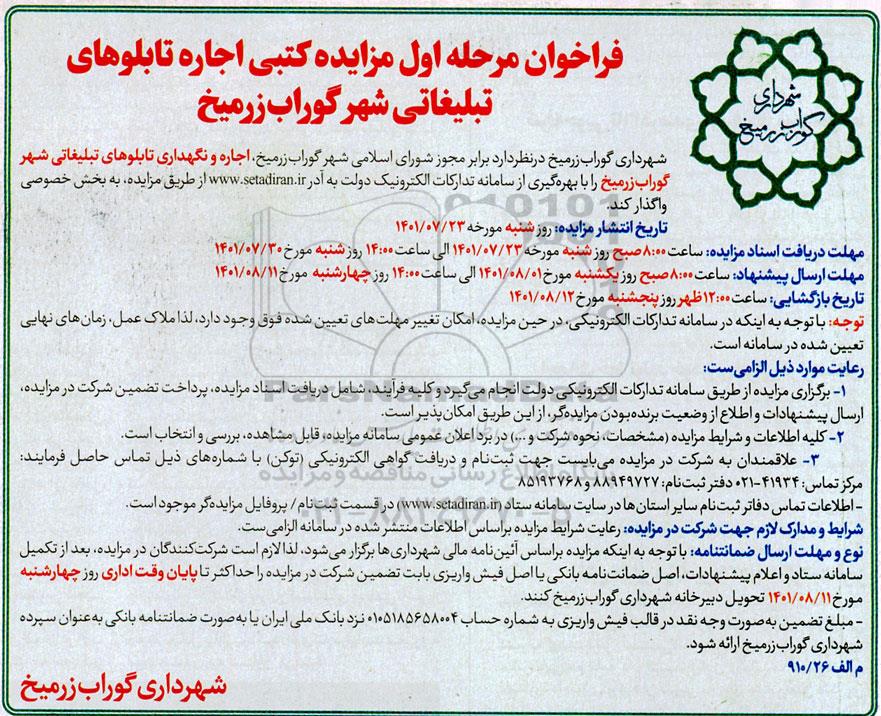 شهرداری
گوراب زرمیخ
فراخوان مرحله اول مزایده کتبی اجاره تابلوهای
تبلیغاتی شهر گوراب‌زرمیخ
شهرداری گوراب‌زرمیخ درنظردارد برابر مجوز شورای اسلامی شهر گوراب‌زرمیخ، اجاره و نگهداری تابلوهای تبلیغاتی شهر
گوراب‌زرمیخ را با بهره‌گیری از سامانه تدارکات الکترونیک دولت به آدر www.setadiran.ir از طریق مزایده، به بخش خصوصی
واگذار کند.
تاریخ انتشار مزایده: روز شنبه مورخه ۱۴۰۱/۰۷/۲۳
مهلت دریافت اسناد مزایده: ساعت ۸:۰۰ صبح روز شنبه مورخه ۱۴۰۱/۰۷/۲۳ الی ساعت ۱۴:۰۰ روز شنبه مورخ ۱۴۰۱/۰۷/۳۰
مهلت ارسال پیشنهاد: ساعت ۸:۰۰ صبح روز یکشنبه مورخ ۱۴۰۱/۰۸/۰۱ الی ساعت ۱۴:۰۰ روز چهارشنبه مورخ ۱۴۰۱/۰۸/۱۱
تاریخ بازگشایی: ساعت ۱۲:۰۰ ظهر روز پنجشنبه مورخ ۱۴۰۱/۰۸/۱۲
توجه: با توجه به اینکه در سامانه تدارکات الکترونیکی، در حین مزایده، امکان تغییر مهلت‌های تعیین شده فوق وجود دارد، لذا ملاک عمل، زمان‌های نهایی
تعیین شده در سامانه است.
رعایت موارد ذیل الزامی‌ست:
۱- برگزاری مزایده از طریق سامانه تدارکات الکترونیکی دولت انجام می‌گیرد و کلیه فرآیند، شامل دریافت اسناد مزایده، پرداخت تضمین شرکت در مزایده،
ارسال پیشنهادات و اطلاع از وضعیت برنده‌بودن مزایده‌گر، از این طریق امکان‌پذیر است.
۲- کلیه اطلاعات و شرایط مزایده (مشخصات، نحوه شرکت و ...) در برد اعلان عمومی سامانه مزایده، قابل مشاهده، بررسی و انتخاب است.
۳- علاقمندان به شرکت در مزایده می‌بایست جهت ثبت‌نام و دریافت گواهی الکترونیکی (توکن) با شماره‌های ذیل تماس حاصل فرمایند:
مرکز تماس: ۴۱۹۳۴-۰۲۱ دفتر ثبت‌نام: ۸۸۹۴۹۷۲۷ و ۸۵۱۹۳۷۶۸
- اطلاعات تماس دفاتر ثبت‌نام سایر استان‌ها در سایت سامانه ستاد (www.setadiran.ir) در قسمت ثبت‌نام/ پروفایل مزایده‌گر موجود است.
شرایط و مدارک لازم جهت شرکت در مزایده: رعایت شرایط مزایده براساس اطلاعات منتشر شده در سامانه الزامی‌ست.
نوع و مهلت ارسال ضمانتنامه: با توجه به اینکه مزایده براساس آئین‌نامه مالی شهرداری‌ها برگزار می‌شود، لذا لازم است شرکت‌کنندگان در مزایده، بعد از تکمیل
سامانه ستاد و اعلام پیشنهادات، اصل ضمانت‌نامه بانکی یا اصل فیش واریزی بابت تضمین شرکت در مزایده را حداکثر تا پایان وقت اداری روز چهارشنبه
مورخ ۱۴۰۱/۰۸/۱۱ تحویل دبیرخانه شهرداری گوراب‌زرمیخ کنند.
- مبلغ تضمین به‌صورت وجه نقد در قالب فیش واریزی به شماره حساب ۰۱۰۵۱۸۵۶۵۸۰۰۴ نزد بانک ملی ایران یا به‌صورت ضمانتنامه بانکی به‌عنوان سپرده
شهرداری گوراب‌زرمیخ ارائه شود.
م الف ۹۱۰/۲۶
شهرداری گوراب‌زرمیخ
ParsNamadData